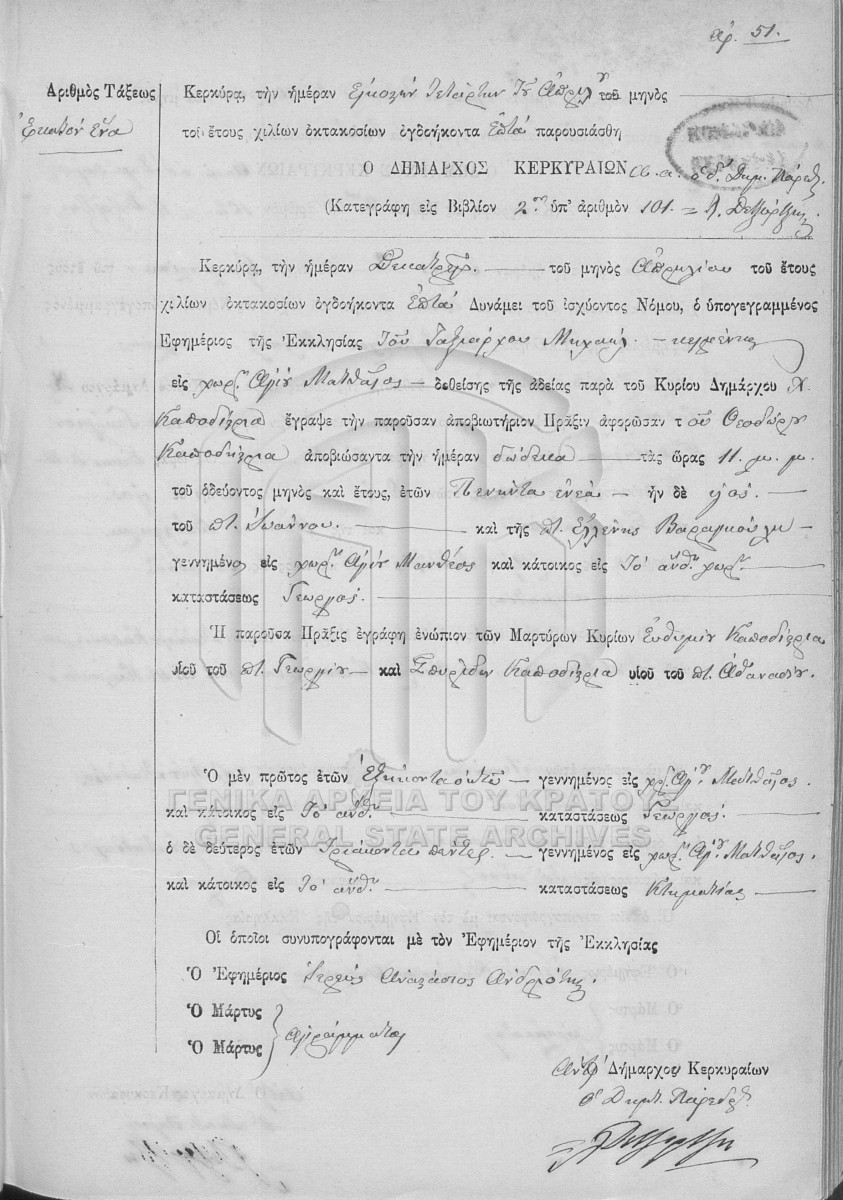 Αρ. 51.
Ἀριθμὸς Τάξεως
Ἑκατὸν ἕνα
Κερκύρᾳ, τὴν ἡμέραν Εἰκοστὴν τετάρτην τοῦ Ἀπριλίου τοῦ μηνὸς
τοῦ ἔτους χιλίων ὀκτακοσίων ὀγδοήκοντα Ἑπτά παρουσιάσθη
Ο ΔΗΜΑΡΧΟΣ ΚΕΡΚΥΡΑΙΩΝ ὁ Δημ. Πάρεδρ.
(Κατεγράφη εἰς Βιβλίον 2ον ὑπ' ἀριθμὸν 101 =
Κερκύρᾳ, τὴν ἡμέραν Δεκατρεῖς τοῦ μηνὸς Ἀπριλίου τοῦ ἔτους
χιλίων ὀκτακοσίων ὀγδοήκοντα Ἑπτά Δυνάμει τοῦ ἰσχύοντος Νόμου, ὁ ὑπογεγραμμένος
Ἐφημέριος τῆς Ἐκκλησίας τοῦ Ταξιάρχου Μιχαήλ κειμένης
εἰς χωρ. Ἁγίου Ματθαῖος δοθείσης τῆς ἀδείας παρὰ τοῦ Κυρίου Δημάρχου
Καποδίστρια ἔγραψε τὴν παροῦσαν ἀποβιωτήριον Πρᾶξιν ἀφορῶσαν τοῦ Θεοδώρου
Καποδίστρια ἀποβιώσαντα τὴν ἡμέραν δώδεκα τὰς ὥρας 11. μ. μ.
τοῦ ὁδεύοντος μηνὸς καὶ ἔτους, ἐτῶν Πενῆντα ἐνεά ἦν δὲ υἱός.
τοῦ π. Ἰωάννου. καὶ τῆς π. Ἑλλένης
γεννημένος εἰς χωρ. Ἁγίου Μανθέος καὶ κάτοικος εἰς Τὸ ἄνθ. χωρ.
καταστάσεως Γεωργός.
Ἡ παροῦσα Πρᾶξις ἐγράφη ἐνώπιον τῶν Μαρτύρων Κυρίων Εὐθυμίου Καποδίστρια
υἱοῦ τοῦ π. Γεωργίου καὶ Σπυρίδων Καποδίστρια υἱοῦ τοῦ π. Ἀθανασίου.
Ὁ μὲν πρῶτος ἐτῶν Ἑξήκοντα ὀκτώ γεννημένος εἰς χωρ. Ἁγίου Ματθαῖος.
καὶ κάτοικος εἰς Τὸ ἄνθ. καταστάσεως Γεωργός.
ΓΕΝΙΚΑ ΑΡΧΕΙΑ ΤΟΥ ΚΡΑΤΟΥΣ
GENERAL STATE ARCHIVES
ὁ δὲ δεύτερος ἐτῶν Τριάκοντα πέντε. γεννημένος εἰς χωρ. Ἁγίου Ματθαῖος.
καὶ κάτοικος εἰς Τὸ ἄνθ. καταστάσεως Κτηματίας
Οἱ ὁποῖοι συνυπογράφονται μὲ τὸν Ἐφημέριον τῆς Ἐκκλησίας
Ὁ Ἐφημέριος Ἱερεύς Ἀναστάσιος Ἀνδριώτης.
Ὁ Μάρτυς
Ὁ Μάρτυς
Ἀγράμματοι
Ἀντὶ Δήμαρχος Κερκυραίων
ὁ Δημτ. Πάρεδρ.